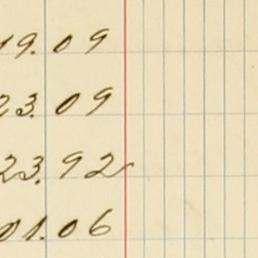 19.09
23.09
23.92
01.06